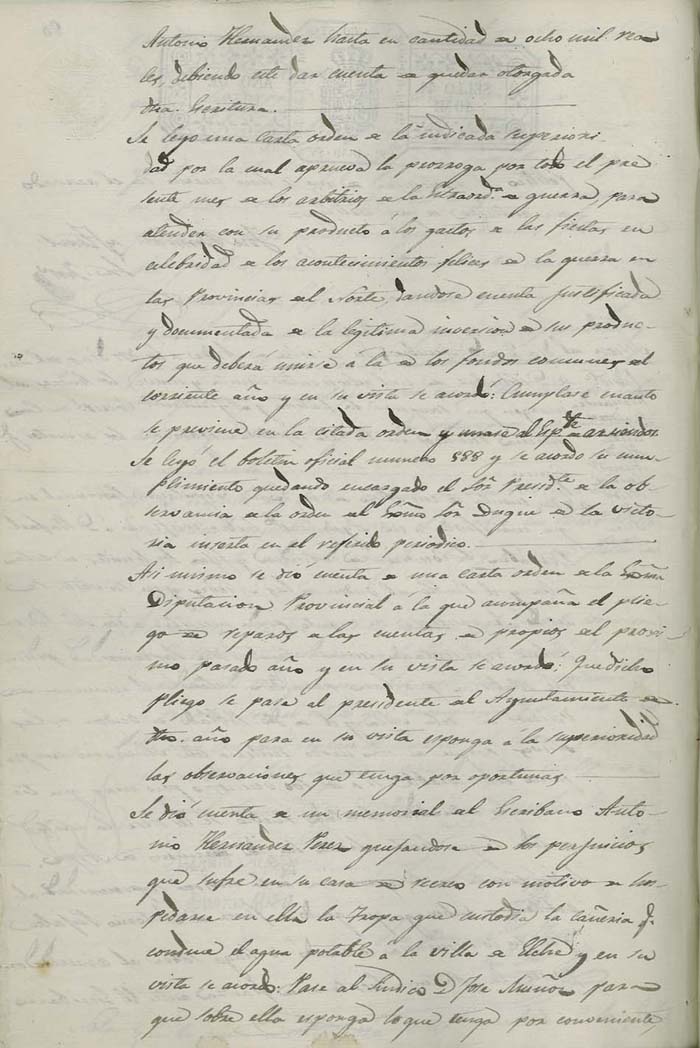 Antonio Hernandez hasta en cantidad de ocho mil rea
les, debiendo este dar cuenta de quedar otorgada
dha. Escritura.
Se leyo una carta orden de la indicada superiori
dad por la cual aprueva la prorroga por todo el pre
sente mes de los arbitrios de la Estraord.ª de guerra, para
atender con su producto á los gastos de las fiestas en
celebridad de los acontecimientos felices de la guerra en
las Provincias del Norte, dandose cuenta justificada
y documentada de la legitima inversion de sus produc-
tos que deberá unirse á la de los fondos comunes del
corriente año y en su vista se acordó: Cumplase cuanto
se previene en la citada orden y unase al Esp.te de arriendos.
Se leyó el boletin oficial numero 888 y se acordo su cum-
plimiento quedando encargado el Sōr Presid.te de la ob-
servancia de la orden del Ecsmo Sōr Duque de la victo-
ria inserta en el referido periodico.
Asi mismo se dió cuenta de una carta orden de la Ecsma
Diputacion Provincial á la que acompaña el plie-
go de reparos de las cuentas de propios del procsi-
mo pasado año y en su vista se acordó: Que dicho
pliego se pase al presidente del Ayuntamiento de
dho. año para en su vista esponga á la superioridad
las observaciones que tenga por oportunas
Se dió cuenta de un memorial del Escribano Anto-
nio Hernandez Perez quejandose de los perjuicios
que sufre en su casa de recreo con motivo de hos-
pedarse en ella la Tropa que custodia la cañeria q.
conduce el agua potable á la villa de Elche y en su
vista se acordó: Pase al Sindico D. Jose Muñoz para
que sobre ella esponga lo que tenga por conveniente,